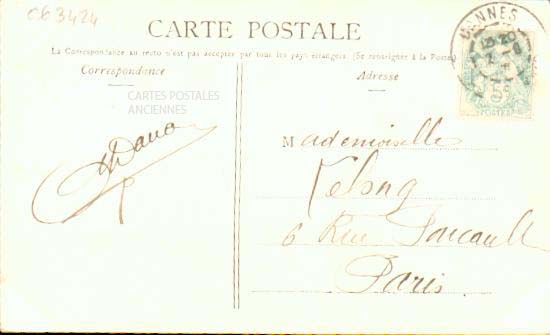 C63424
CARTE POSTALE
La Correspondance au recto n'est pas acceptée par tous les pays étrangers. (Se renseigner à la Poste)
Correspondance
Adresse
CARTES POSTALES
ANCIENNES
VANNES
5c
POSTES
Mademoiselle
Lelong
6 Rue
Paris